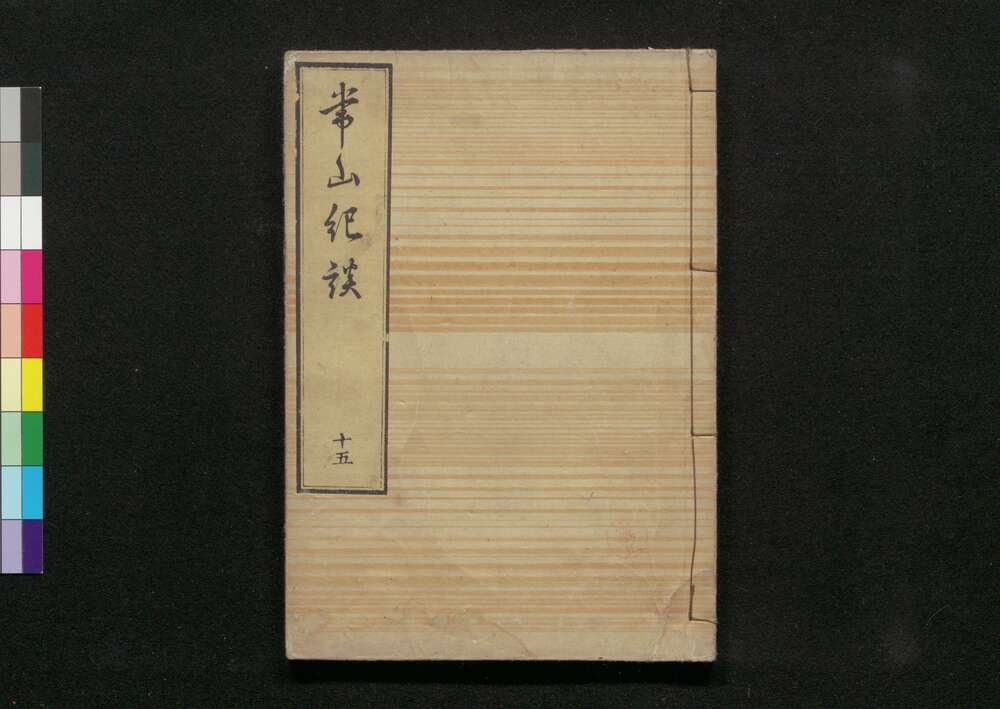 常山紀談
十五